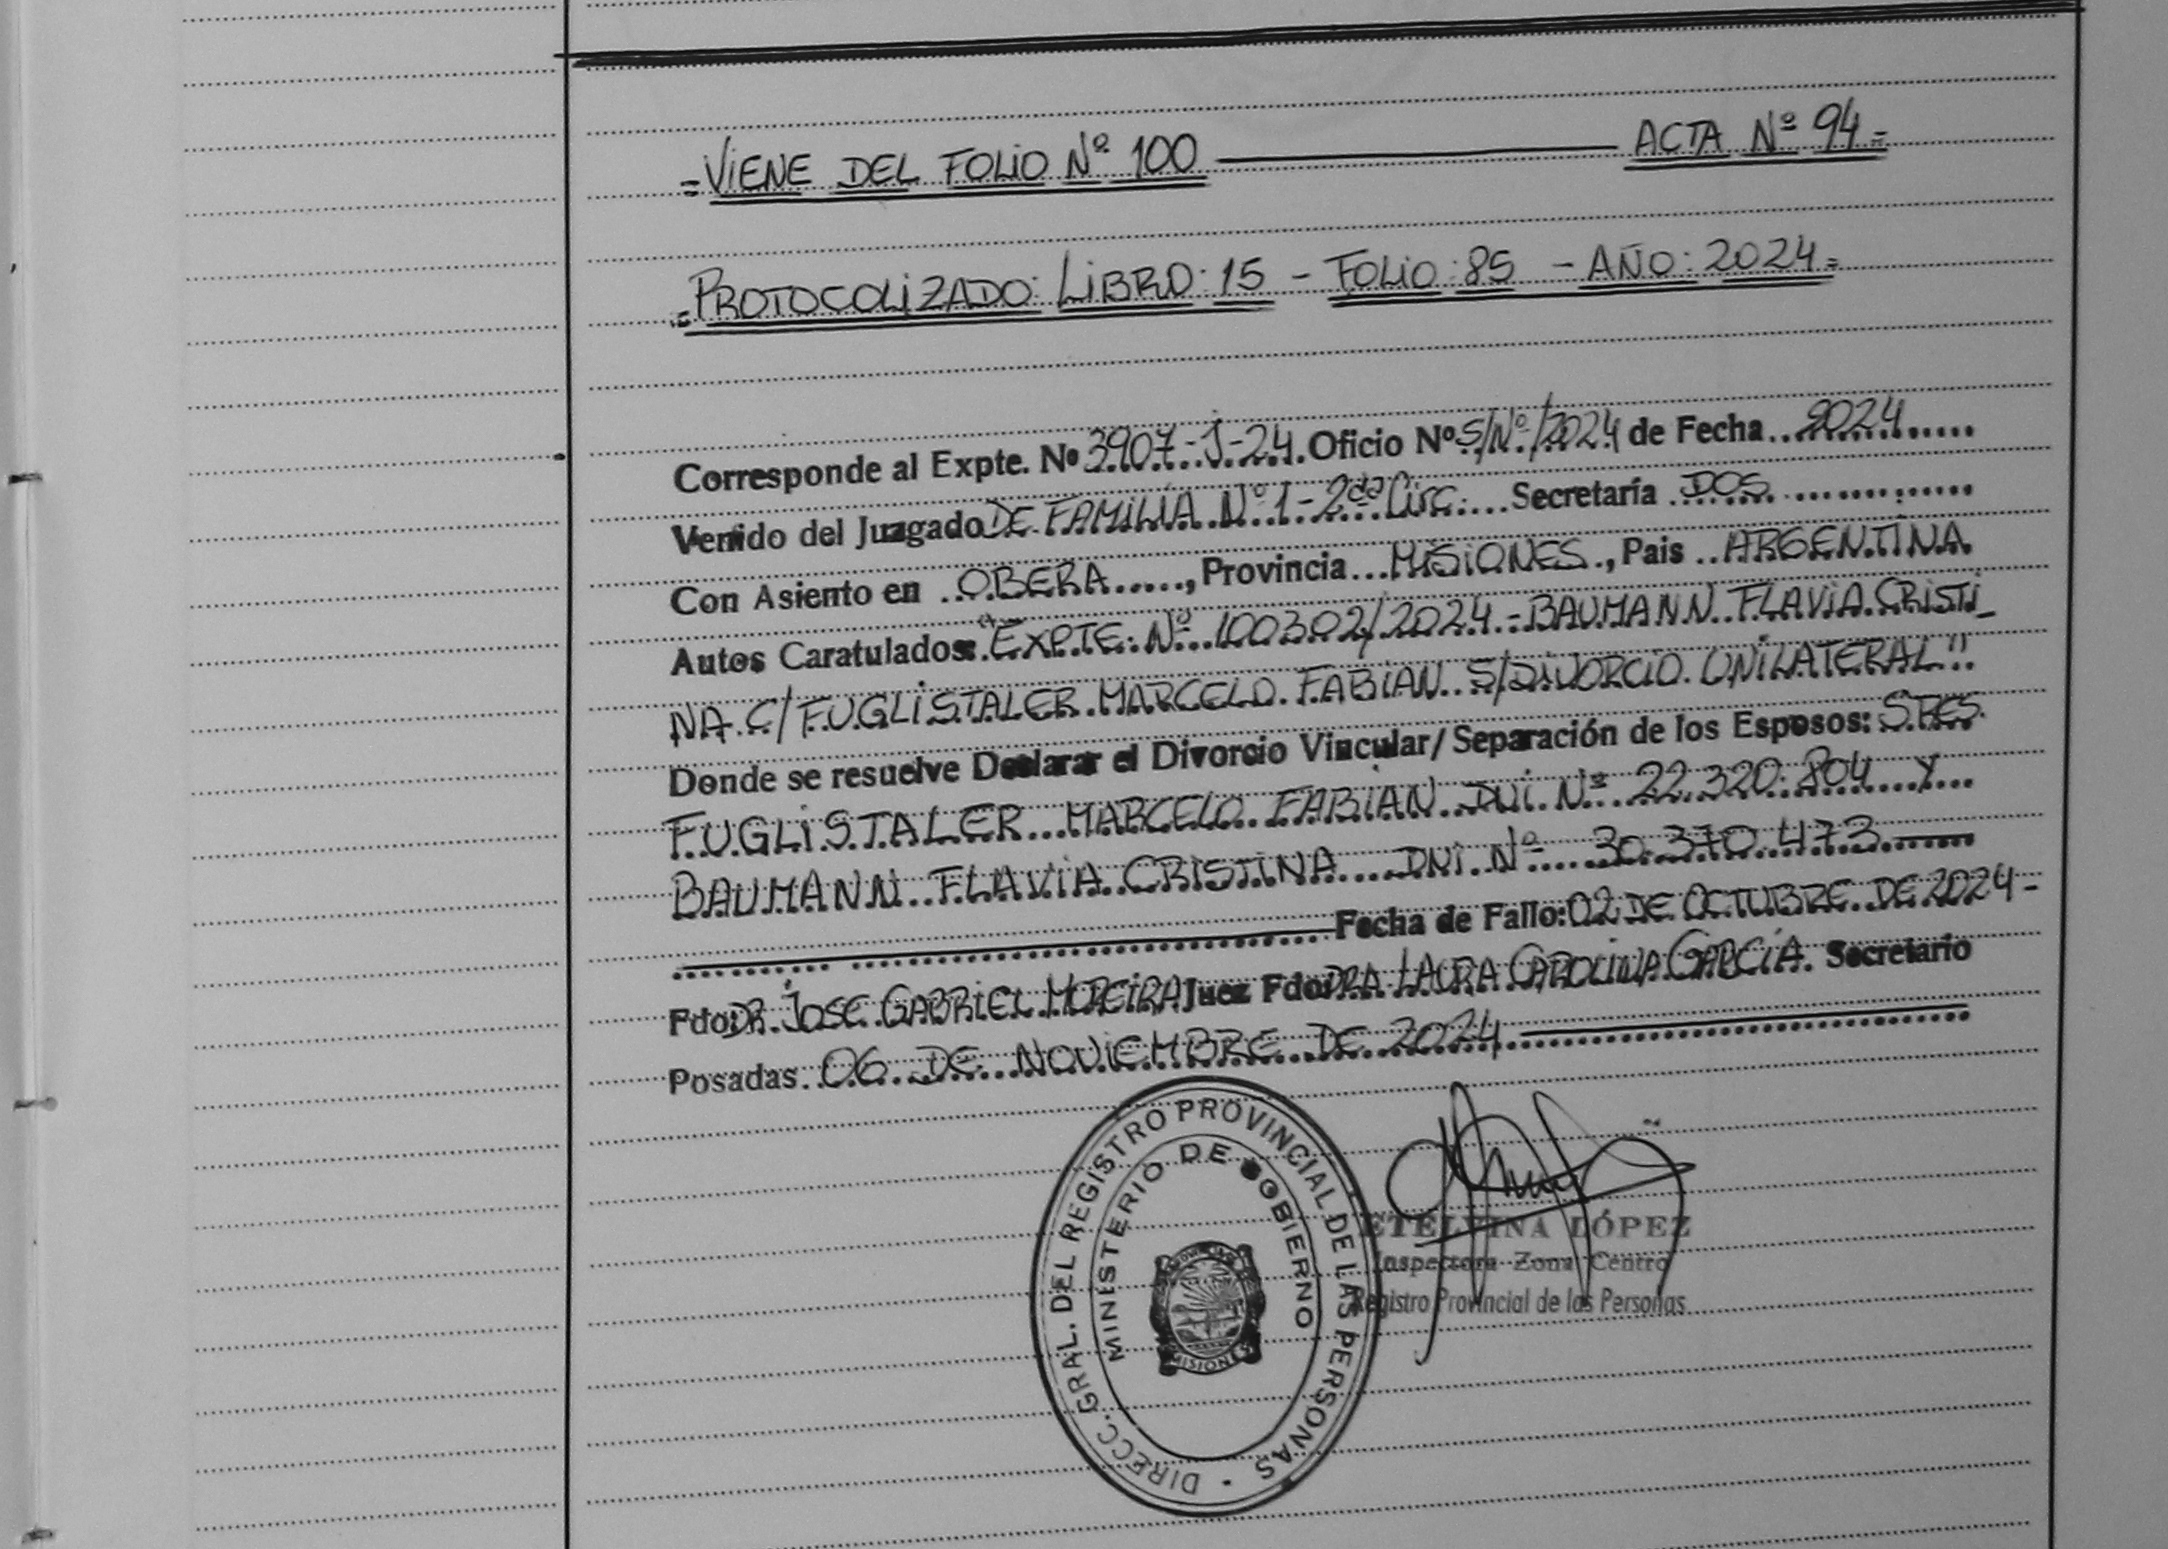 =VIENE DEL FOLIO Nº 100 ACTA Nº 94=
=PROTOCOLIZADO: LIBRO: 15 - FOLIO: 85 - AÑO: 2024=
Corresponde al Expte. Nº 3907-J-24. Oficio Nº S/Nº/2024 de Fecha 2024
Venido del Juzgado DE FAMILIA Nº 1 - 2da Circ. Secretaría DOS
Con Asiento en OBERA, Provincia MISIONES, Pais ARGENTINA
Autos Caratulados: "EXPTE. Nº 100302/2024 - BAUMANN FLAVIA CRISTI_
NA C/ FUGLISTALER MARCELO FABIAN S/DIVORCIO UNILATERAL"
Donde se resuelve Declarar el Divorcio Vincular/Separación de los Esposos: SRES.
FUGLISTALER MARCELO FABIAN DNI. Nº 22.320.804 Y
BAUMANN FLAVIA CRISTINA DNI Nº 30.370.473
Fecha de Fallo: 02 DE OCTUBRE DE 2024-
Fdo: DR. JOSE GABRIEL MOREIRA Juez Fdo: DRA LAURA CAROLINA GARCÍA. Secretario
Posadas 06 DE NOVIEMBRE DE 2024
DIRECC. GRAL. DEL REGISTRO PROVINCIAL DE LAS PERSONAS -
MINISTERIO DE GOBIERNO
MISIONES
ETELVINA LÓPEZ
Inspectora Zona Centro
Registro Provincial de las Personas